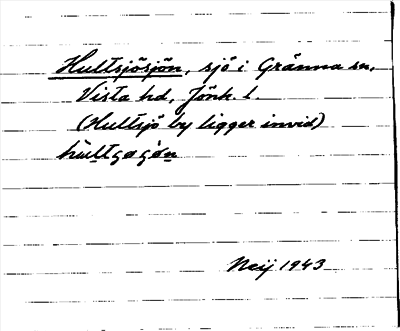 Hultsjösjön, sjö i Gränna sn,
Vista hd, Jönk. l.
(Hultsjö by ligger invid)
Neij 1943